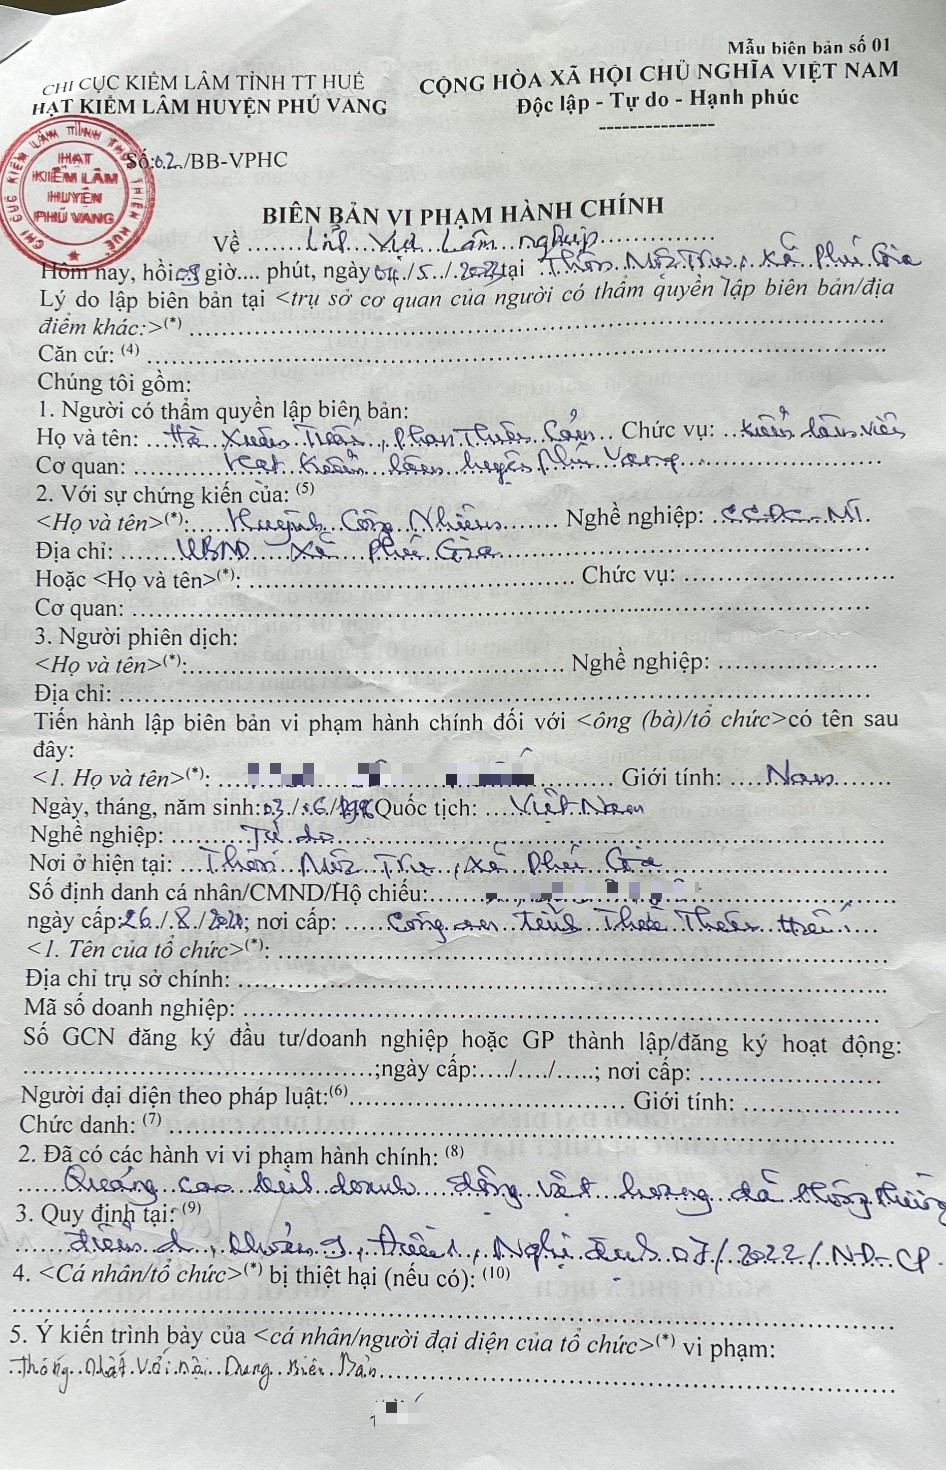 Mẫu biên bản số 01
CHI CỤC KIỂM LÂM TỈNH TT HUẾ
HẠT KIỂM LÂM HUYỆN PHÚ VANG
CỘNG HÒA XÃ HỘI CHỦ NGHĨA VIỆT NAM
Độc lập - Tự do - Hạnh phúc
---------------
CHI CỤC KIỂM LÂM TỈNH THỪA THIÊN HUẾ
HẠT
KIỂM LÂM
HUYỆN
PHÚ VANG
Số:02/BB-VPHC
BIÊN BẢN VI PHẠM HÀNH CHÍNH
Về ......Lĩnh vực Lâm nghiệp..............
Hôm nay, hồi 09 giờ.... phút, ngày 04./5../2023 tại .Thôn Môc Trụ, xã Phú Gia
Lý do lập biên bản tại <trụ sở cơ quan của người có thẩm quyền lập biên bản/địa
điểm khác:>(*) ........................................
Căn cứ: (4) ........................................
Chúng tôi gồm:
1. Người có thẩm quyền lập biên bản:
Họ và tên: ...Hà Xuân Tuấn, Phan Thiên Cảm.. Chức vụ: ..kiểm lâm viên
Cơ quan: .........Hạt Kiểm lâm huyện Phú Vang....................
2. Với sự chứng kiến của: (5)
<Họ và tên>(*):.....Huỳnh Công Nhiêm....... Nghề nghiệp: .CCĐC-MT.
Địa chỉ: ......UBND xã Phú Gia..............................
Hoặc <Họ và tên>(*): ........................................ Chức vụ: .........................
Cơ quan: ........................................
3. Người phiên dịch:
<Họ và tên>(*):........................................ Nghề nghiệp: ...................
Địa chỉ: ........................................
Tiến hành lập biên bản vi phạm hành chính đối với <ông (bà)/tổ chức>có tên sau
đây:
<1. Họ và tên>(*): ............ Giới tính: ....Nam.......
Ngày, tháng, năm sinh:03./.06./1996 Quốc tịch: ...Việt Nam
Nghề nghiệp: .........Tự do........................................
Nơi ở hiện tại: ...Thôn Môc Trụ, xã Phú Gia....................
Số định danh cá nhân/CMND/Hộ chiếu:......
ngày cấp:26./.8./2021; nơi cấp: .....Công an tỉnh Thừa Thiên Huế.
<1. Tên của tổ chức>(*): ........................................
Địa chỉ trụ sở chính: ........................................
Mã số doanh nghiệp: ........................................
Số GCN đăng ký đầu tư/doanh nghiệp hoặc GP thành lập/đăng ký hoạt động:
........................................;ngày cấp:..../..../.....; nơi cấp: .........................
Người đại diện theo pháp luật:(6)........................................ Giới tính: ....................
Chức danh: (7) ........................................
2. Đã có các hành vi vi phạm hành chính: (8)
......Quảng cáo kinh doanh động vật hoang dã thông thường
3. Quy định tại: (9)
.......điểm d, khoản 9, Điều 1, Nghị định 07/2022/NĐ-CP.
4. <Cá nhân/tổ chức>(*) bị thiệt hại (nếu có): (10)
........................................
5. Ý kiến trình bày của <cá nhân/người đại diện của tổ chức>(*) vi phạm:
..Thống Nhất Với Nội Dung Biên Bản........................................